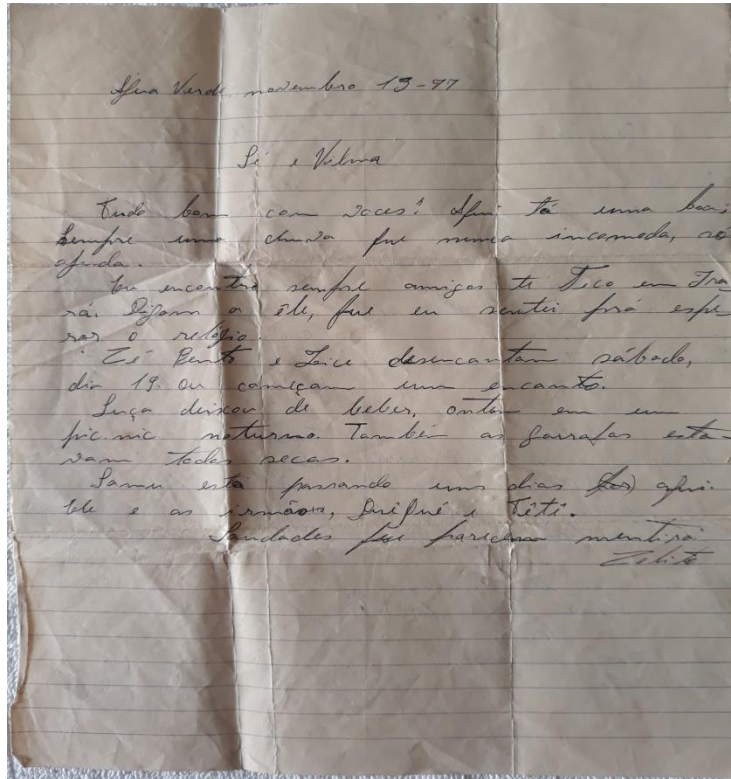 Água Verde, novembro 13-97
Sé e Vilma
Tudo bem com voces? Aqui tá uma boa;
Sempre uma chuva que nunca incomoda, só
ajuda.
Eu encontro sempre amigos te Tico em
Digam a êle, que eu sentei prá espe-
rar o relógio.
Zé Bento e Joice desencantam sábado,
dia 19. ou começam um encanto.
deixou de beber, ontem em um
pic.nic noturno. Também as garrafas esta-
vam todas secas.
está passando uns dias aqui.
Ele e as irmãos, Quiqué e Têtê.
Saudades que parecem mentira
Zelito